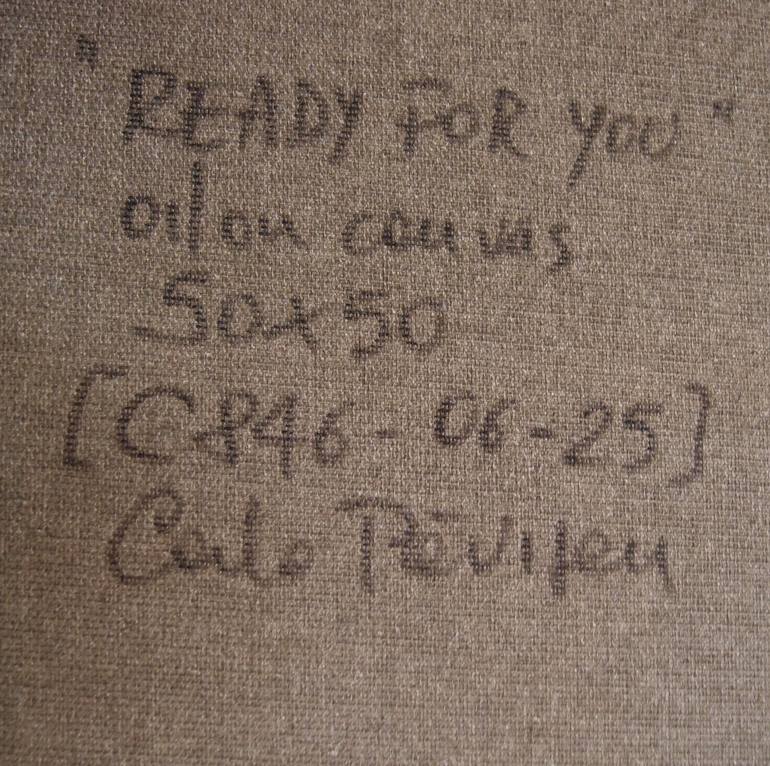 "READY FOR YOU"
oil on canvas
50x50
[C846-06-25]
Carlo